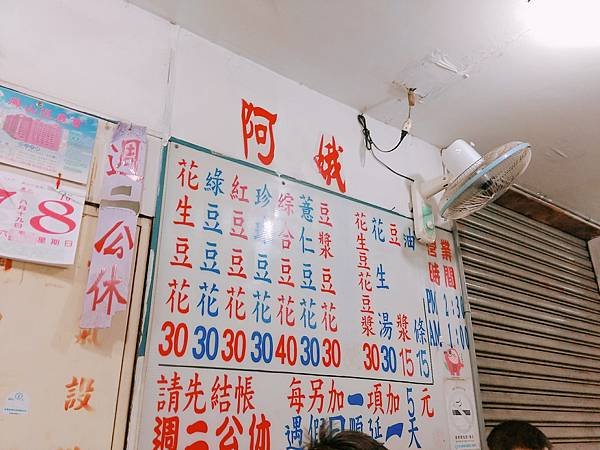 阿娥
花生豆花 30
綠豆豆花 30
紅豆豆花 30
珍珠豆花 30
綜合豆花 40
薏仁豆花 30
豆漿豆花 30
花生豆花豆漿 30
花生湯 30
豆漿 15
油條 15
營業時間
PM 2:30
AM 1:00
請先結帳 每另加一項加5元
週二公休 遇假日順延一天
週二公休
8
星期日
氣設